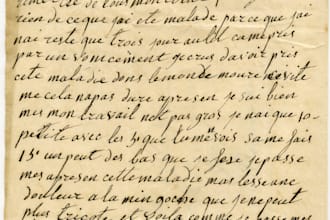 rion de ce que jai ete malade par ce que jai
nai reste que trois jour au lit ca me pris
par un vomicement je crus davoir pris
cette maladie dons le monde moure si vite
me cela na pas dure apresen je sui bien
mes mon travail net pas gros je nai que 10
petite avec les 3e que tu me vois sa me fais
13e un peut des bas que je fose je passe
mes apresen cette maladie ma lesse une
douleur a la min goche que je ne peut
plus tricote et voila comme je passe mes